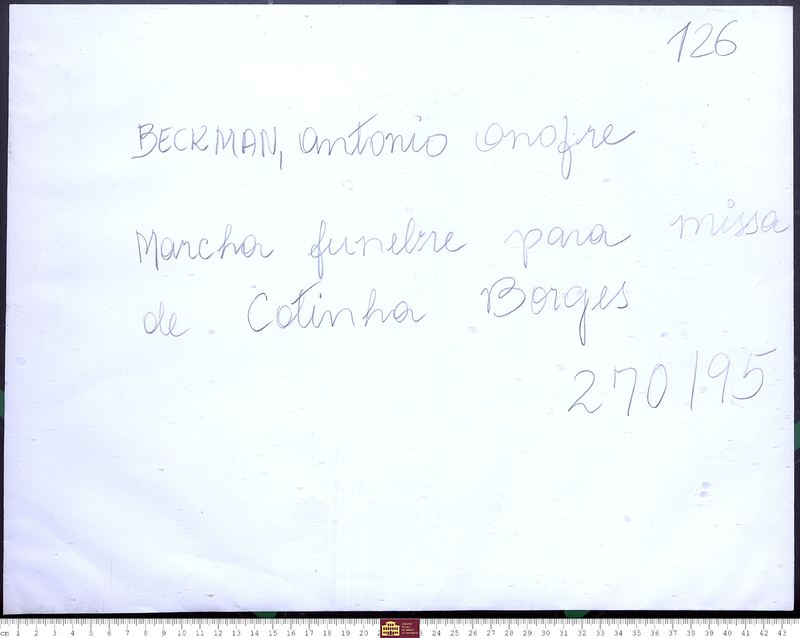 126
BECKMAN, Antonio Onofre
Marcha funebre para missa
de Cotinha Borges
270/95
cm 1 2 3 4 5 6 7 8 9 10 11 12 13 14 15 16 17 18 19 20 23 24 25 26 27 28 29 30 31 32 33 34 35 36 37 38 39 40 41 42 43